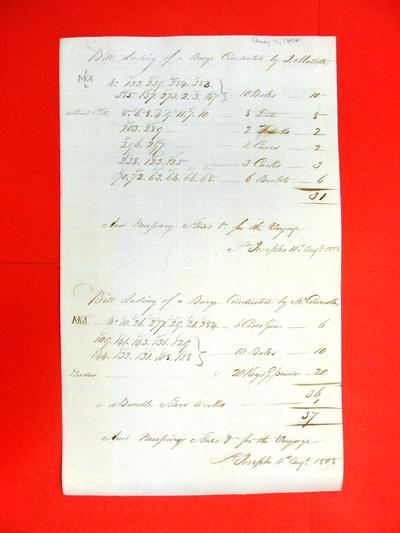 Aug 11, 1808
Bill Lading of a Barge Conducted by J. Mallette
MKA Nº 132. 239. 384. 383.
385. 157. 273. 2. 3. 147 } 10 Bales — 10
5. 6. 8. 4. 9. 11. 7. 10 — 8 Ditto — 8
203. 289 — 2 Trunks — 2
296. 297 — 2 Cases — 2
238. 123. 125 — 3 Casks — 3
70. 72. 63. 64. 66. 68. — 6 Baskets — 6
31
And Necessary Stores &c for the Voyage
St Josephs 11th Augt. 1808
Bill Lading of a Barge Conducted by
MKA Nº 10. 26. 277. 29. 21. 284. — 6 Cases Guns — 6
109. 141. 143. 136. 129
144. 132. 131. 108. 128 } 10 Bales — 10
20 Kegs Powder — 20
36
a Bundle Silver Works — 1
37
And Necessary Stores &c for the Voyage
St Josephs 11th Augt. 1808